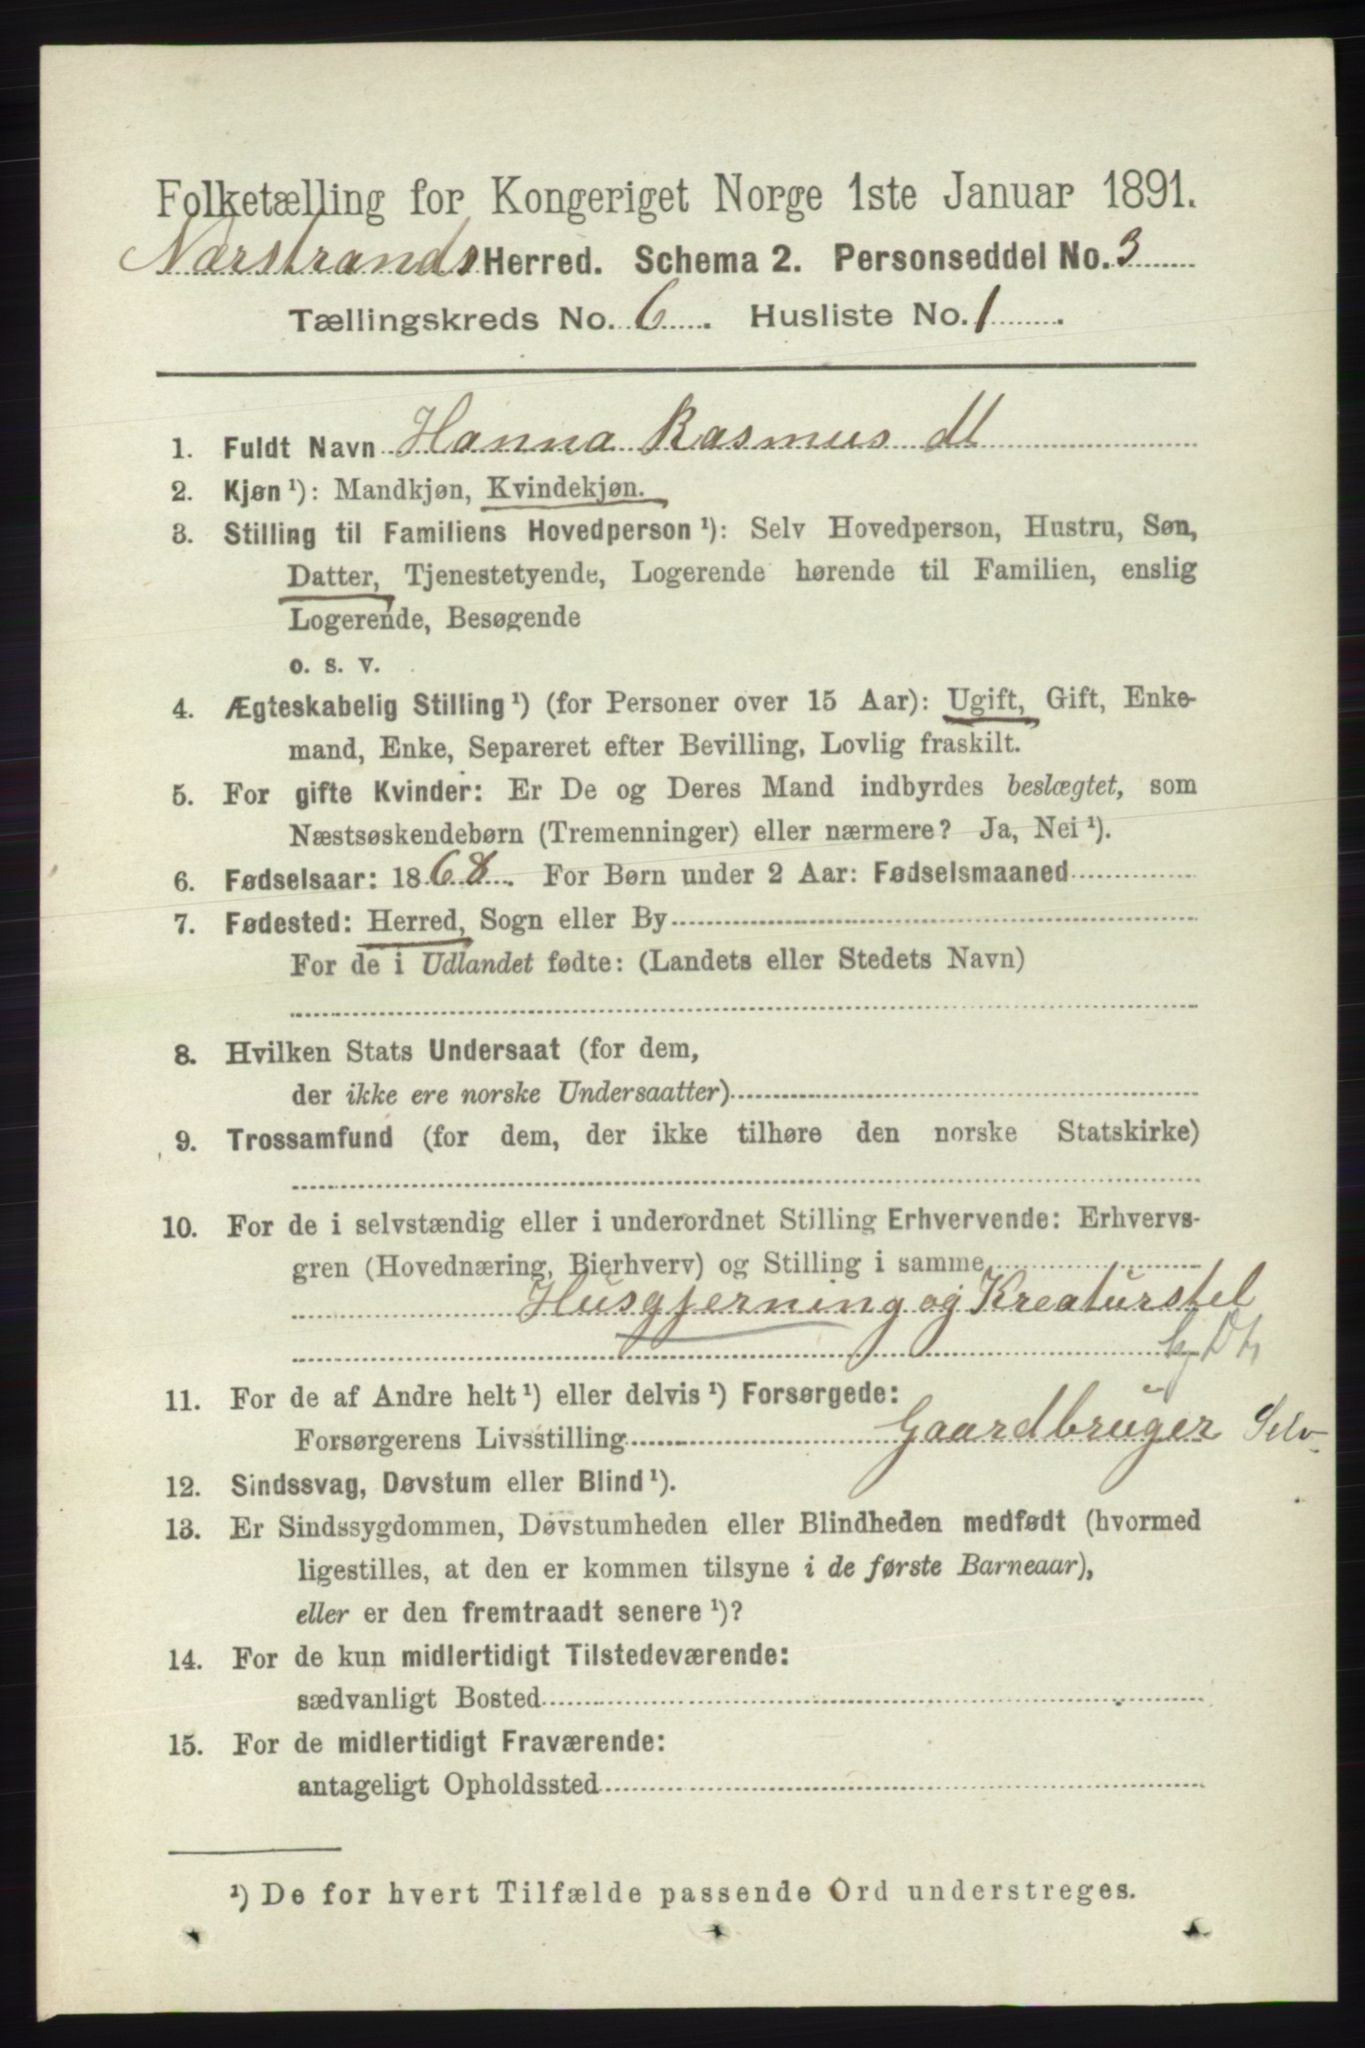 Folketælling for Kongeriget Norge 1ste Januar 1891.
Nærstrands Herred. Schema 2. Personseddel No. 3
Tællingskreds No. 6. Husliste No. 1.
1. Fuldt Navn Hanna Rasmus dt
2. Kjøn ¹): Mandkjøn, Kvindekjøn.
3. Stilling til Familiens Hovedperson ¹): Selv Hovedperson, Hustru, Søn,
Datter, Tjenestetyende, Logerende hørende til Familien, enslig
Logerende, Besøgende
o. s. v.
4. Ægteskabelig Stilling ¹) (for Personer over 15 Aar): Ugift, Gift, Enke-
mand, Enke, Separeret efter Bevilling, Lovlig fraskilt.
5. For gifte Kvinder: Er De og Deres Mand indbyrdes beslægtet, som
Næstsøskendebørn (Tremenninger) eller nærmere? Ja, Nei ¹).
6. Fødselsaar: 1868. For Børn under 2 Aar: Fødselsmaaned
7. Fødested: Herred, Sogn eller By
For de i Udlandet fødte: (Landets eller Stedets Navn)
8. Hvilken Stats Undersaat (for dem,
der ikke ere norske Undersaatter)
9. Trossamfund (for dem, der ikke tilhøre den norske Statskirke)
10. For de i selvstændig eller i underordnet Stilling Erhvervende: Erhvervs-
gren (Hovednæring, Bierhverv) og Stilling i samme
Husgjerning og Kreaturstel
11. For de af Andre helt ¹) eller delvis ¹) Forsørgede:
Forsørgerens Livsstilling Gaardbruger Selv
12. Sindssvag, Døvstum eller Blind ¹).
13. Er Sindssygdommen, Døvstumheden eller Blindheden medfødt (hvormed
ligestilles, at den er kommen tilsyne i de første Barneaar),
eller er den fremtraadt senere ¹)?
14. For de kun midlertidigt Tilstedeværende:
sædvanligt Bosted
15. For de midlertidigt Fraværende:
antageligt Opholdssted
¹) De for hvert Tilfælde passende Ord understreges.